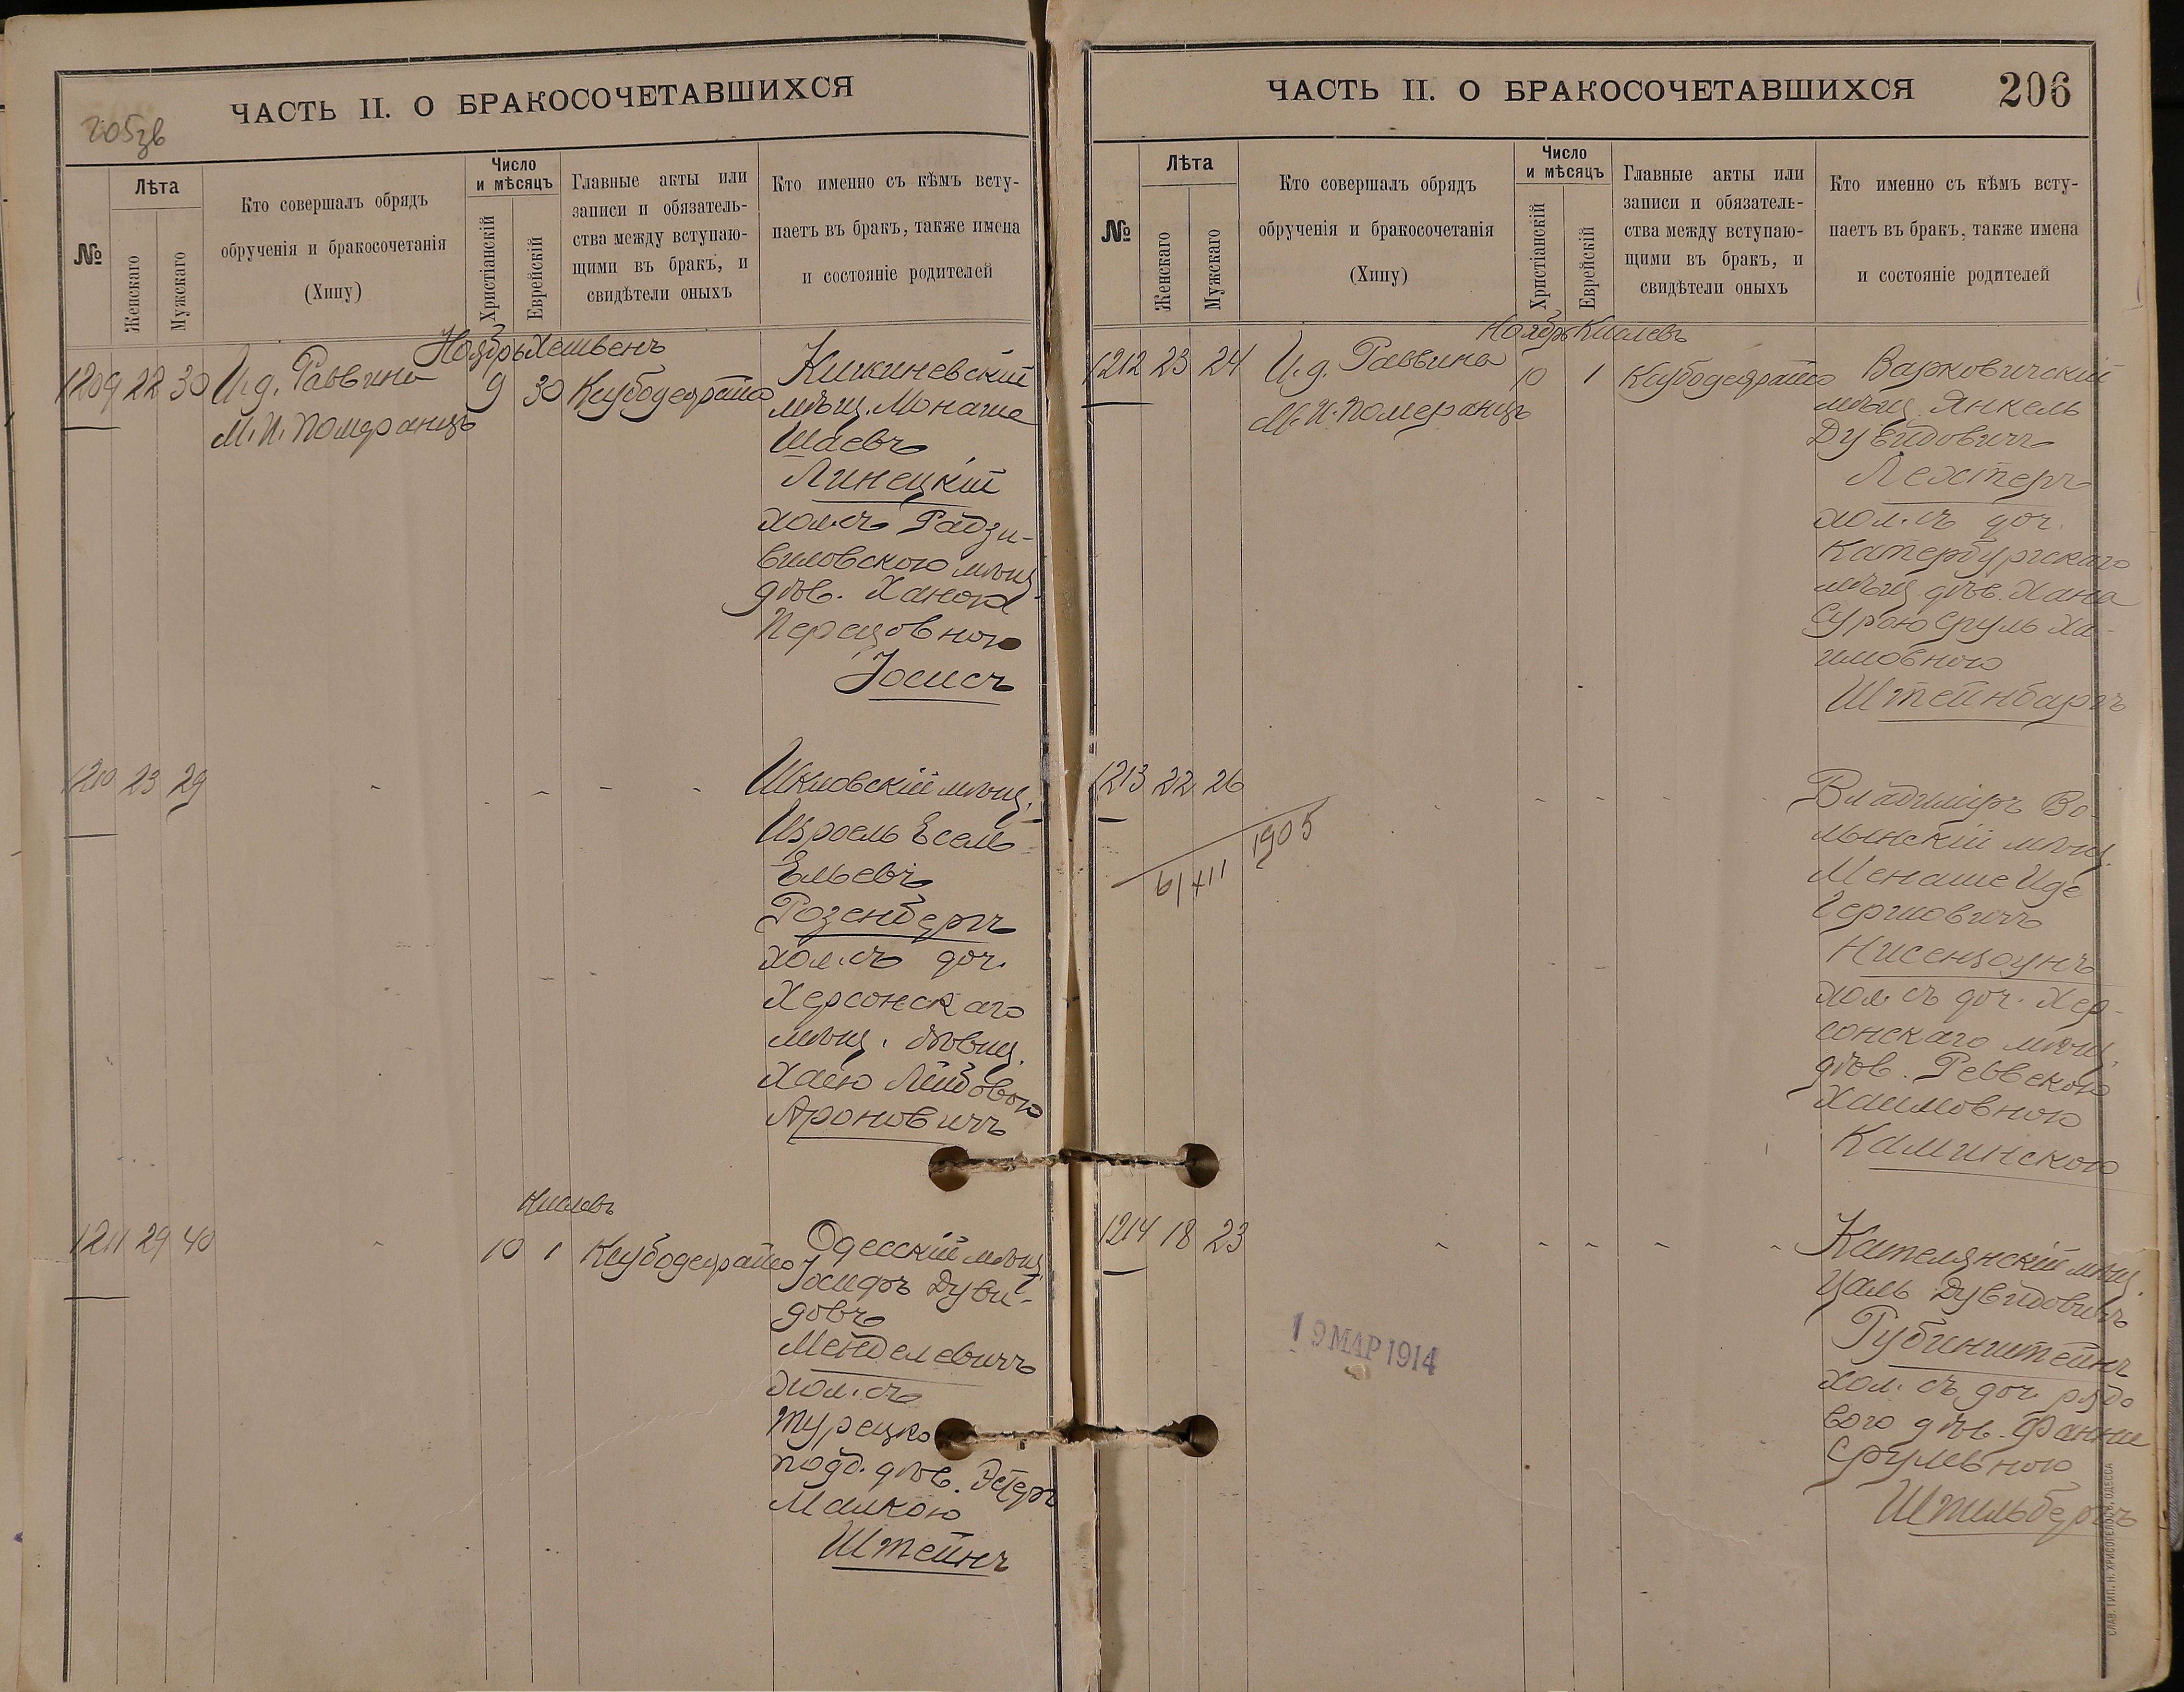 ЧАСТЬ II. О БРАКОСОЧЕТАВШИХСЯ
205зв
№
Лѣта
Женскаго
Мужскаго
Кто совершалъ обрядъ
обрученія и бракосочетанія
(Хипу)
Число
и мѣсяцъ
Христіанскій
Еврейскій
Главные акты или
записи и обязатель-
ства между вступаю-
щими въ бракъ, и
свидѣтели оныхъ
Кто именно съ кѣмъ всту-
паетъ въ бракъ, также имена
и состояніе родителей
Ноябрь Хешвенъ
1209 22 30 И.д. Раввина 9 30
М.И. Померанцъ
Кишиневскій
мѣщ. Монаше
Шаевъ
Линецкій
хол. съ Радзи-
виловскою мѣщ.
дѣв. Ханою
Перецовною
Іосисъ
1210 23 29
Шкловскій мѣщ.
Изроель Есель
Ельевъ
Розенбергъ
хол. съ доч.
Херсонскаго
мѣщ. дѣвиц.
Хаею Лейбовою
Ароновичъ
Кислевъ
1211 29 40 10 1
Одесскій мѣщ.
Іосифъ Дуви-
довъ
Менделевичъ
хол. съ
турецко
подд. дѣв. Эстеръ
Малкою
Штейнъ
ЧАСТЬ II. О БРАКОСОЧЕТАВШИХСЯ
206
№
Лѣта
Женскаго
Мужскаго
Кто совершалъ обрядъ
обрученія и бракосочетанія
(Хипу)
Число
и мѣсяцъ
Христіанскій
Еврейскій
Главные акты или
записи и обязатель-
ства между вступаю-
щими въ бракъ, и
свидѣтели оныхъ
Кто именно съ кѣмъ всту-
паетъ въ бракъ, также имена
и состояніе родителей
Ноябрь Кислевъ
1212 23 24 И.д. Раввина 10 1
М.И. Померанцъ
Варковичскій
мѣщ. Янкель
Дувидовичъ
Лехтеръ
хол. съ доч.
Катербургскаго
мѣщ. дѣв. Хана
Сурою Сруль Ха-
имовною
Штейнбаргъ
1213 22 26
6/XII 1905
Владиміръ Во-
лынскій мѣщ.
Менаше Иде
Гершовичъ
Нисенцоунъ
хол. съ доч. Хер-
сонскаго мѣщ.
дѣв. Реввекою
Хаимовною
Каминскою
1214 18 23
Кателянскій мѣщ.
Цаль Дувидовичъ
Рубинштейнъ
хол. съ доч. рядо
вого дѣв. Фанни
Срулевною
Штильбергъ
19 МАР 1914
СЛАВ. ТИП. Н. ХРИСОГЕЛОСЪ, ОДЕССА